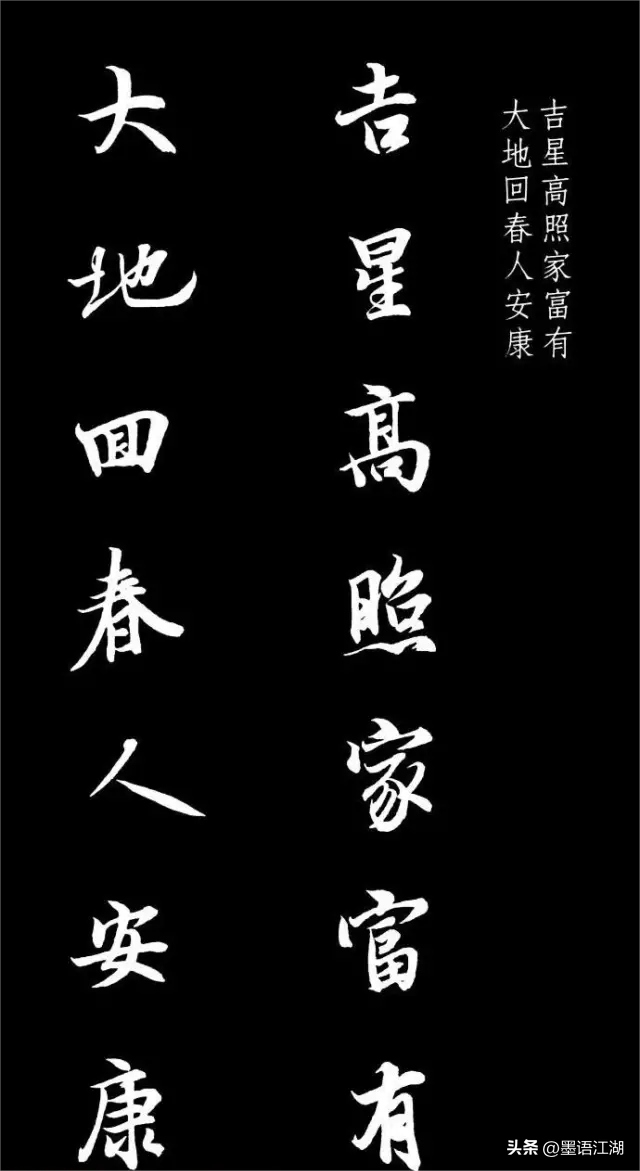 吉星高照家富有
大地回春人安康
吉星高照家富有
大地回春人安康
头条 @墨语江湖